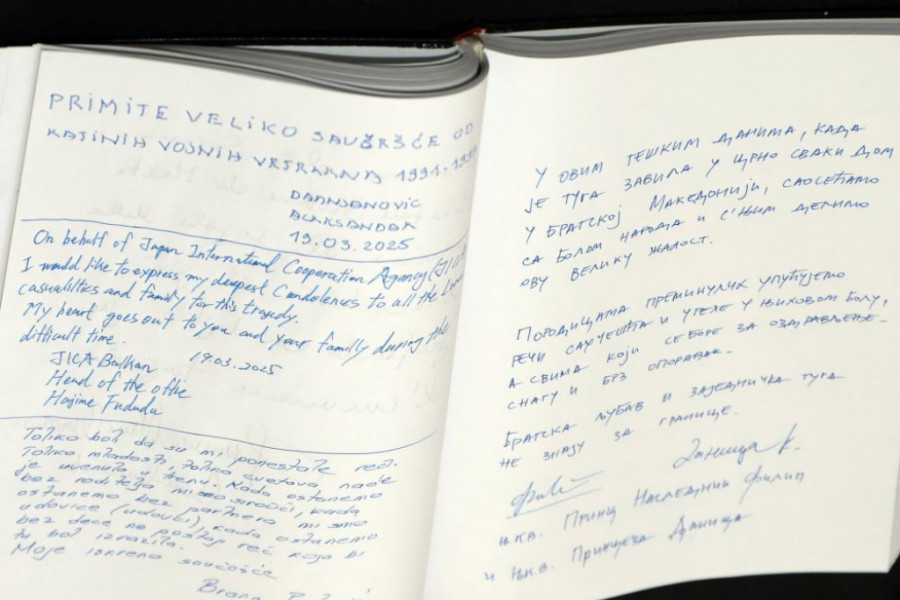 PRIMITE VELIKO SAUŽRŠĆE OD
RATNIH VOJNIH VETERANA 1991-199
DAMNJANOVIĆ
ALEKSANDAR
19.03.2025
On behalf of Japan International Cooperation Agency (JICA
I would like to express my deepest Condolences to all the
casualities and family for this tragedy.
My heart goes out to you and your family during the
difficult time.
JICA Balkan 19.03.2025
Head of the office
Hajime
Toliko boli da su mi ponestale reči.
Toliko mladosti, toliko cvetova nade
je uvenulo u trenu. Kada ostanemo
bez roditelja mi smo siročići, kada
ostanemo bez partnera mi smo
udovice (udovci), kada ostanemo
bez dece ne postoji reč koja bi
tu bol izrazila.
Moje iskreno saučešće
У ОВИМ ТЕШКИМ ДАНИМА, КАДА
ЈЕ ТУГА ЗАВИЛА У ЦРНО СВАКИ ДОМ
У БРАТСКОЈ МАКЕДОНИЈИ, САОСЕЋАМО
СА БОЛОМ НАРОДА И С ЊИМ ДЕЛИМО
ОВУ ВЕЛИКУ ЖАЛОСТ.
ПОРОДИЦАМА ПРЕМИНУЛИХ УПУЋУЈЕМО
РЕЧИ САУЧЕШЋА И УТЕХЕ У ЊИХОВОМ БОЛУ,
А СВИМА КОЈИ СЕ БОРЕ ЗА ОЗДРАВЉЕЊЕ-
СНАГУ И БРЗ ОПОРАВАК.
БРАТСКА ЉУБАВ И ЗАЈЕДНИЧКА ТУГА
НЕ ЗНАЈУ ЗА ГРАНИЦЕ.
Даница К.
Филип
Њ.К.В. ПРИНЦ НАСЛЕДНИК ФИЛИП
И Њ.К.В. ПРИНЦЕЗА ДАНИЦА